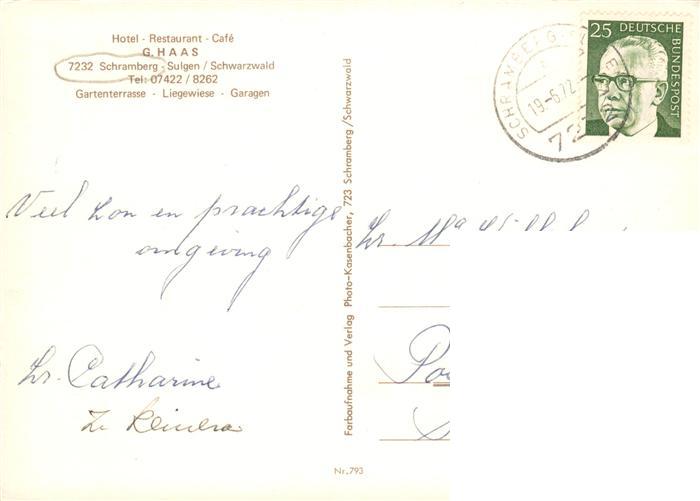 Hotel - Restaurant - Café
G. HAAS
7232 Schramberg - Sulgen / Schwarzwald
Tel: 07422 / 8262
Gartenterrasse - Liegewiese - Garagen
25 DEUTSCHE BUNDESPOST
SCHRAMBERG
19.-6.72
72
Veel zon en prachtige
omgeving
Zr. Catharine
Zr
Farbaufnahme und Verlag Photo-Kasenbacher, 723 Schramberg/Schwarzwald
Zr. Ma
Nr. 793